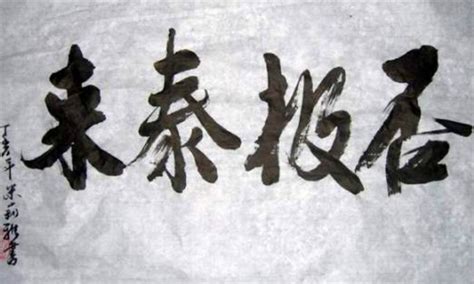 否极泰来
丁亥年書